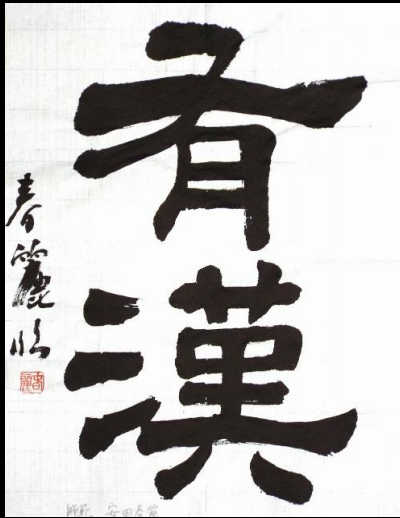 有漢
春麗臨
師範 安田春麗